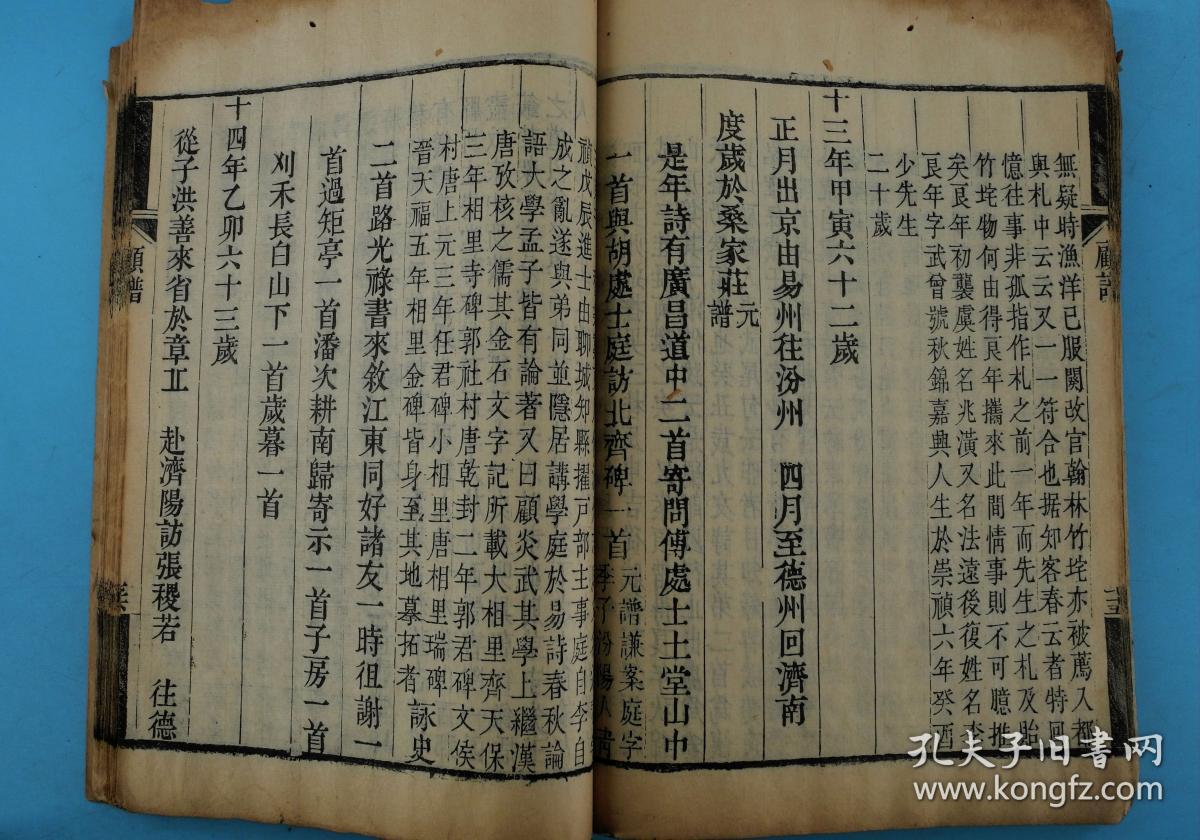 顧譜
無疑時漁洋已服闋改官翰林竹垞亦被薦入
與札中云云又一一符合也据知客春云者特回
憶往事非孤指作札之前一年而先生之札及貽
竹垞物何由得良年攜來此間情事則不可臆推
矣良年初襲虞姓名兆潢又名法遠後復姓名李
良年字武曾號秋錦嘉興人生於崇禎六年癸酉
少先生
二十歲
十三年甲寅六十二歲
正月出京由易州往汾州　四月至德州回濟南
度歲於桑家莊元譜
是年詩有廣昌道中二首寄問傅處士土堂山中
一首與胡處士庭訪北齊碑一首元譜謙案庭字
季子汾陽人
禎戊辰進士由聊城知縣擢戶部主事庭自李自
成之亂遂與弟同並隱居講學庭於易詩春秋論
語大學孟子皆有論著又曰顧炎武其學上繼漢
唐攷核之儒其金石文字記所載大相里齊天保
三年相里寺碑郭社村唐乾封二年郭君碑文侯
村唐上元三年任君碑小相里唐相里瑞碑
晉天福五年相里金碑皆身至其地摹拓者詠史
二首路光祿書來敘江東同好諸友一時徂謝一
首過矩亭一首潘次耕南歸寄示一首子房一首
刈禾長白山下一首歲暮一首
十四年乙卯六十三歲
從子洪善來省於章丘　赴濟陽訪張稷若　往德
顧譜
孔夫子旧書网
www.kongfz.com